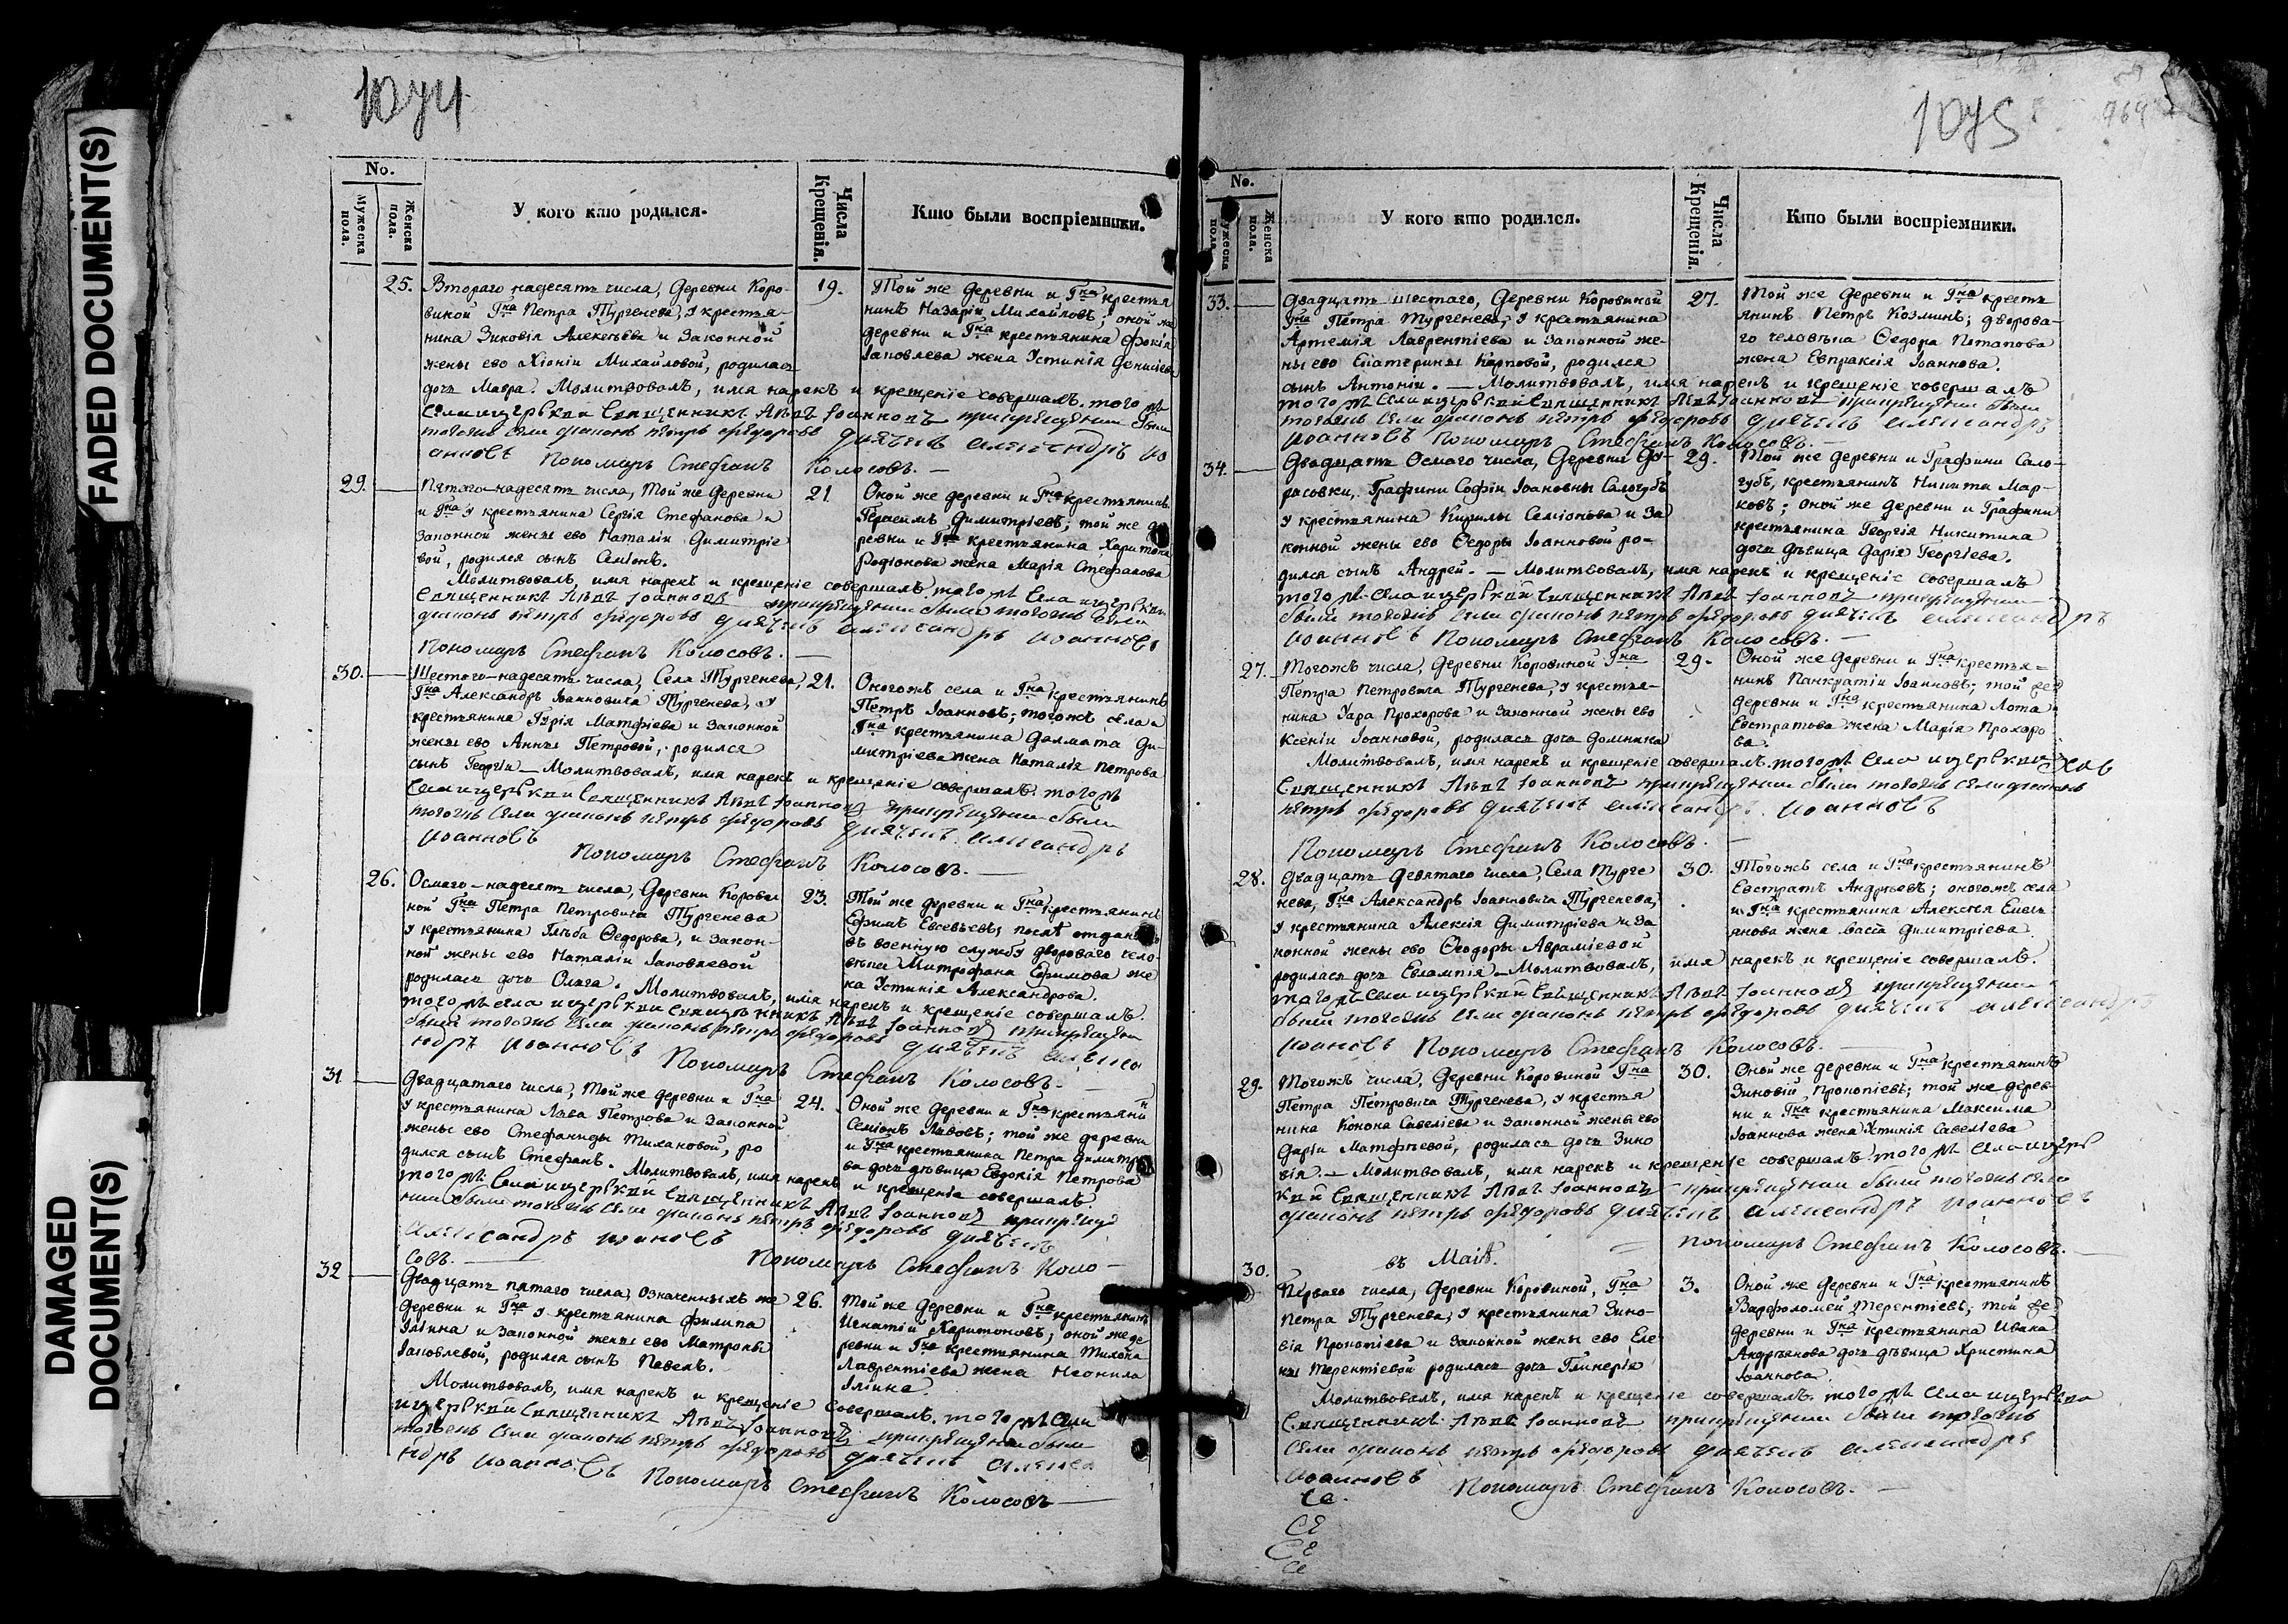 FADED DOCUMENT(S)
DAMAGED DOCUMENT(S)
1074
No.
Мужеска пола.
Женска пола.
У кого кто родился.
Числа Крещенія.
Кто были воспріемники.
25.
Втораго надесять числа, Деревни Коро-
виной Гна Петра Тургенева, у крестья-
нина Зиновія Алексѣева и законной
жены ево Хіоніи Михайловой, родилась
дочь Мавра. Молитвовалъ, имя нарекъ и крещеніе совершалъ того жъ
села церькви священникъ Левъ Іоанновъ прикрещении были
тогожъ села диаконъ петръ федоровъ дьячекъ александръ ио
анновъ Пономарь Стефанъ Колосовъ.
19.
Той же деревни и Гна крестья
нинъ Назарій Михайловъ; оной же
деревни и Гна крестьянина Фокія
Іаковлева жена Устинія Денисіева
29.
Пятого-надесять числа, той же деревни
и Гна у крестьянина Сергія Стефанова и
законной жены ево Наталіи Димитріе
вой, родился сынъ Семіонъ.
Молитвовалъ, имя нарекъ и крещеніе совершалъ того жъ села церькви
священникъ Левъ Іоанновъ прикрещении были тогожъ села
диаконъ петръ федоровъ дьячекъ александръ иоанновъ
Пономарь Стефанъ Колосовъ.
21
Оной же деревни и Гна крестьянинъ
Герасимъ Димитріевъ; той же де
ревни и Гна крестьянина Харитона
Родіонова жена Марія Стефанова
30.
Шестого-надесять числа, Села Тургенева,
Гна Александръ Іоанновича Тургенева, у
крестьянина Гурія Матфіева и законной
жены ево Анны Петровой, родился
сынъ Георгій Молитвовалъ, имя нарекъ и крещеніе совершалъ того жъ
села церькви священникъ Левъ Іоанновъ прикрещении были
тогожъ села диаконъ петръ федоровъ дьячекъ александръ
иоанновъ
Пономарь Стефанъ Колосовъ.
21.
Оногожъ села и Гна крестьянинъ
Петръ Іоанновъ; тогожъ села и
Гна крестьянина Далмата Ди-
митріева жена Наталія Петрова
26.
Осмаго-надесять числа, Деревни Корови
ной Гна Петра Петровича Тургенева
у крестьянина Глѣба Ѳедорова, и закон-
ной жены ево Наталіи Іаковлевой
родилась дочь Ольга. Молитвовалъ, имя нарекъ и крещеніе совершалъ.
того жъ села церькви священникъ Левъ Іоанновъ прикрещении
были тогожъ села диаконъ петръ федоровъ дьячекъ алекса
ндръ иоанновъ Пономарь Стефанъ Колосовъ.
23.
Той же деревни и Гна крестьянинъ
Ефимъ Евсевьевъ;
въ военную службу двороваго чело
вѣка Митрофана Ефимова же
на Устинія Александрова.
31
Двадцатаго числа, Той же деревни и Гна
у крестьянина Льва Петрова и законной
жены ево Стефаниды Тихановой, ро
дился сынъ Стефанъ. Молитвовалъ, имя нарекъ и крещеніе совершалъ.
того жъ села церькви священникъ Левъ Іоанновъ прикреще
нии были тогожъ села диаконъ петръ федоровъ дьячекъ
александръ иоановъ Пономарь Стефанъ Коло-
совъ.
24.
Оной же деревни и Гна крестьяни
Семіонъ Львовъ; той же деревни
и Гна крестьянина Петра Димитрі
ва дочь дѣвица Евдокія Петрова
32
Двадцать пятаго числа, означенныхъ же
деревни и Гна у крестьянина Филипа
Ильина и законной жены ево Матроны
Іаковлевой, родился сынъ Павелъ.
Молитвовалъ, имя нарекъ и крещеніе совершалъ. того жъ села
церькви священникъ Левъ Іоанновъ прикрещении были
тогожъ села диаконъ петръ федоровъ дьячекъ алекса
ндръ иоанновъ Пономарь Стефанъ Колосовъ
26.
Той же деревни и Гна крестьянинъ
Игнатій Харитоновъ; оной же де
ревни и Гна крестьянина Тихона
Лаврентіева жена Неонила
Ильина.
1075
969
No.
Мужеска пола.
Женска пола.
У кого кто родился.
Числа Крещенія.
Кто были воспріемники.
33.
Двадцать шестаго, Деревни Коровиной
Гна Петра Тургенева, у крестьянина
Артемія Лаврентіева и законной же-
ны ево Екатерины Карповой, родился
сынъ Антоній. — Молитвовалъ, имя нарекъ и крещеніе совершалъ
того жъ села церькви священникъ Левъ Іоанновъ прикрещении были
тогожъ села диаконъ петръ федоровъ дьячекъ александръ
иоанновъ Пономарь Стефанъ Колосовъ. —
27.
Той же деревни и Гна кресть
янинъ Петръ Козминъ; дворова-
го человѣка Ѳедора Потапова
жена Евпраксія Іоаннова.
34.
Двадцать Осмаго числа, Деревни
расовки, Графини Софіи Іоанновны Салогубъ
у крестьянина Кирилы Семіонова и за
конной жены ево Ѳедоры Іоанновой ро-
дился сынъ Андрей. — Молитвовалъ, имя нарекъ и крещеніе совершалъ
того жъ села церькви священникъ Левъ Іоанновъ прикрещении
были тогожъ села диаконъ петръ федоровъ дьячекъ александръ
иоанновъ Пономарь Стефанъ Колосовъ. —
29.
Той же деревни и Графини Сало-
губъ, крестьянинъ Никита Мар-
ковъ; оной же деревни и Графини
крестьянина Георгія Никитина
дочь дѣвица Дарія Георгіева.
27.
Тогожъ числа, Деревни Коровиной Гна
Петра Петровича Тургенева, у крестья-
нина Уара Прохорова и законной жены ево
Ксеніи Іоанновой, родилась дочь Домника
Молитвовалъ, имя нарекъ и крещеніе совершалъ. того жъ села церькви
священникъ Левъ Іоанновъ прикрещении были тогожъ села диаконъ
петръ федоровъ дьячекъ александръ иоанновъ
Пономарь Стефанъ Колосовъ. —
29.
Оной же деревни и Гна крестья-
нинъ Панкратій Іоанновъ; той же
деревни и Гна крестьянина Лота
Евстратова жена Марія Прохоро
ва.
28.
Двадцать девятаго числа, Села Турге
нева, Гна Александръ Іоанновича Тургенева,
у крестьянина Алексія Димитріева и за
конной жены ево Ѳеодоры Авраміевой
родилась дочь Евлампія. Молитвовалъ, имя нарекъ и крещеніе совершалъ.
того жъ села церькви священникъ Левъ Іоанновъ прикрещении
были тогожъ села диаконъ петръ федоровъ дьячекъ александръ
иоановъ Пономарь Стефанъ Колосовъ. —
30.
Тогожъ села и Гна крестьянинъ
Евстратъ Андреевъ; оногожъ села
и Гна крестьянина Алексѣя Емель
янова жена Васса Димитріева
29.
Тогожъ числа, Деревни Коровиной Гна
Петра Петровича Тургенева, у крестья
нина Конона Савеліева и законной жены ево
Даріи Матфѣевой, родилась дочь Зино
вія. — Молитвовалъ, имя нарекъ и крещеніе совершалъ того жъ села церь
кви священникъ Левъ Іоанновъ прикрещении были тогожъ села
диаконъ петръ федоровъ дьячекъ александръ иоанновъ
Пономарь Стефанъ Колосовъ. —
30.
Оной же деревни и Гна крестьянинъ
Зиновій Прокопіевъ; той же дерев-
ни и Гна крестьянина Максима
Іоаннова жена Устинія Савеліева
въ Маіѣ.
30.
Перваго числа, Деревни Коровиной, Гна
Петра Тургенева, у крестьянина Зино-
вія Прокопіева и законной жены ево Еле
ны Терентіевой родилась дочь Гликерія
Молитвовалъ, имя нарекъ и крещеніе совершалъ. того жъ села церькви
священникъ Левъ Іоанновъ прикрещении были тогожъ
села диаконъ петръ федоровъ дьячекъ александръ
иоанновъ Пономарь Стефанъ Колосовъ. —
3.
Оной же деревни и Гна крестьянинъ
Варфоломей Терентіевъ; той же
деревни и Гна крестьянина Ивана
Андріянова дочь дѣвица Христина
Іоаннова.